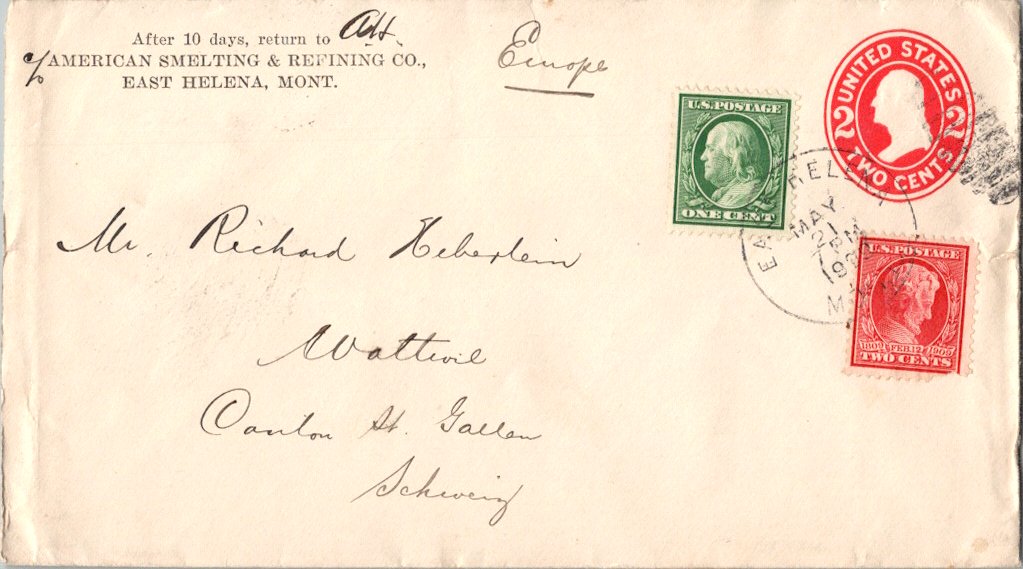 After 10 days, return to AH.
c/o AMERICAN SMELTING & REFINING CO.,
EAST HELENA, MONT.
Europe
UNITED STATES
2 2
TWO CENTS
U.S. POSTAGE
ONE CENT
EAST HELENA
MAY
21
PM
1909
U.S. POSTAGE
1809 FEB. 12 1909
TWO CENTS
Mr. Richard Heberlein
Wattwil
Canton St. Gallen
Schweiz